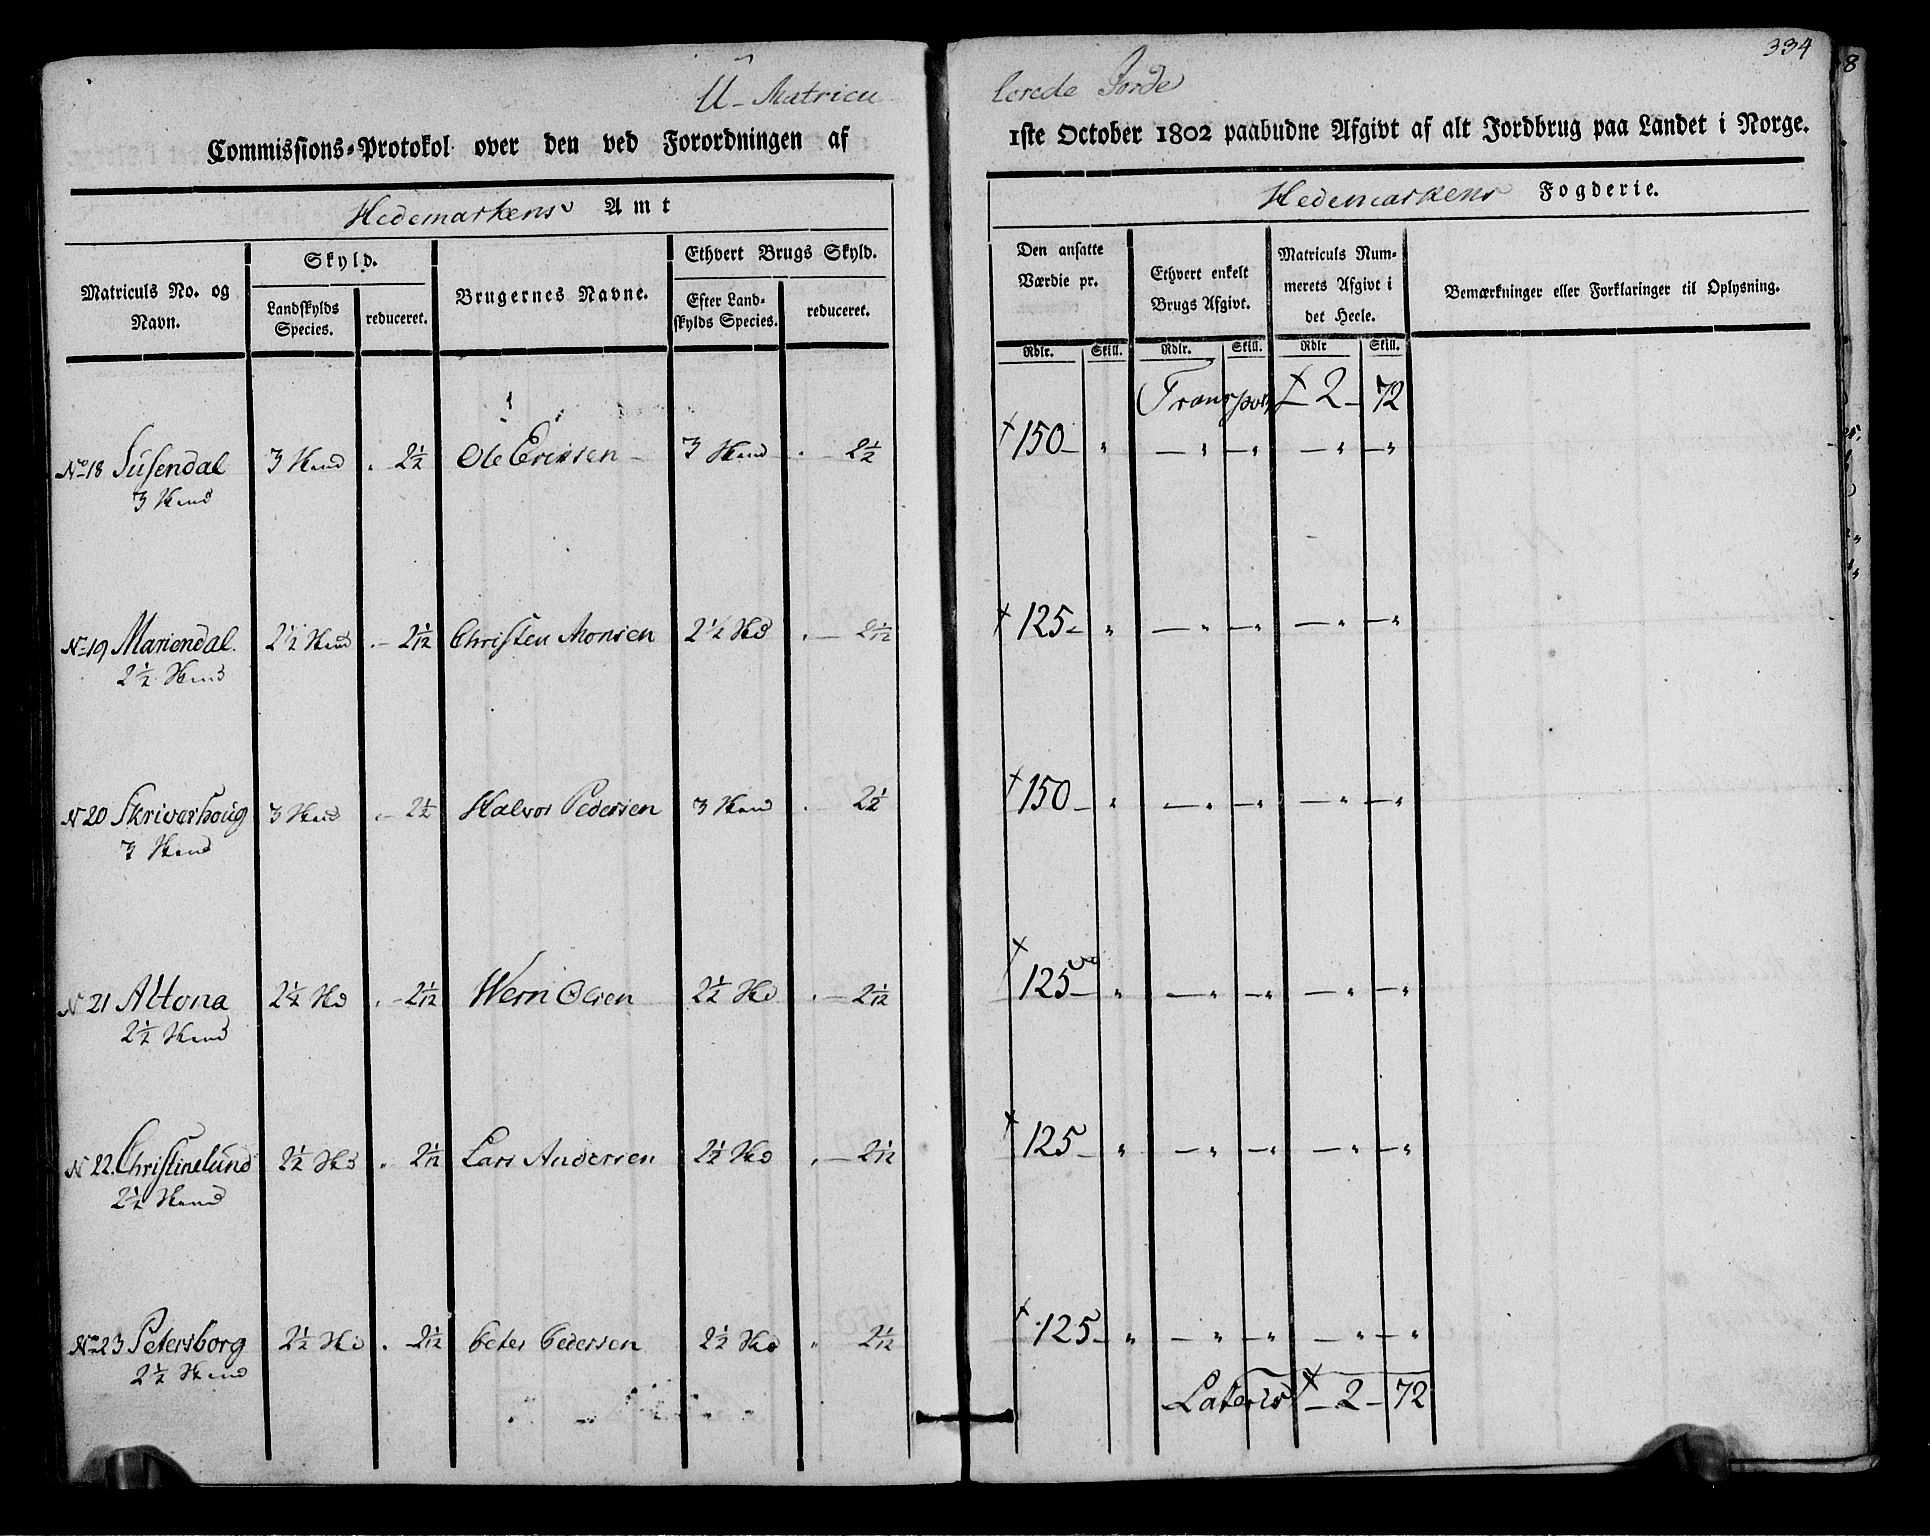 334
8
U-Matricu lerede Jorde
Commissions-Protokol over den ved Forordningen af 1ste October 1802 paabudne Afgivt af alt Jordbrug paa Landet i Norge.
Hedemarkens Amt
Hedemarkens Fogderie.
Matriculs No. og Navn.
Skyld.
Landskylds Species.
reduceret.
Brugernes Navne.
Ethvert Brugs Skyld.
Efter Landskylds Species.
reduceret.
Den ansatte Værdie pr.
Ethvert enkelt Brugs Afgivt.
Matriculs Nummerets Afgivt i det Heele.
Bemærkninger eller Forklaringer til Oplysning.
Rdlr. Skill. Rdlr. Skill. Rdlr Skill.
Transport 2 - 72
No 18 Susendal 3 Hund . 2½ Ole Ericksen 3 Hund . - 2½ 150 - " - " - " - " - "
3 Hund
No 19 Mariendal. 2½ Hund . - 2 1/12 Christen Monsen 2½ Hd . - 2 1/12 125 - " - " - " - " - "
2½ Hund
N 20 Skriverhoug 3 Hund . - 2½ Halvor Pedersen 3 Hund . 2½ 150 - " - " - " - " - "
3 Hund
N 21 Altona 2½ Hd . - 2 1/12 Wern Olsen 2½ Hd . - 2 1/12 125 - " - " - " - " - "
2½ Hund
N 22. Christinelund 2½ Hd . 2 1/12 Lars Andersen 2½ Hd . - 2 1/12 125 - " - " - " - " - "
2½ Hund
No 23 Petersborg 2½ Hd . 2 1/12 Peter Pedersen 2½ Hd " 2 1/12 125 - " - " - " - " - "
2½ Hund
Lateris - 2 - 72